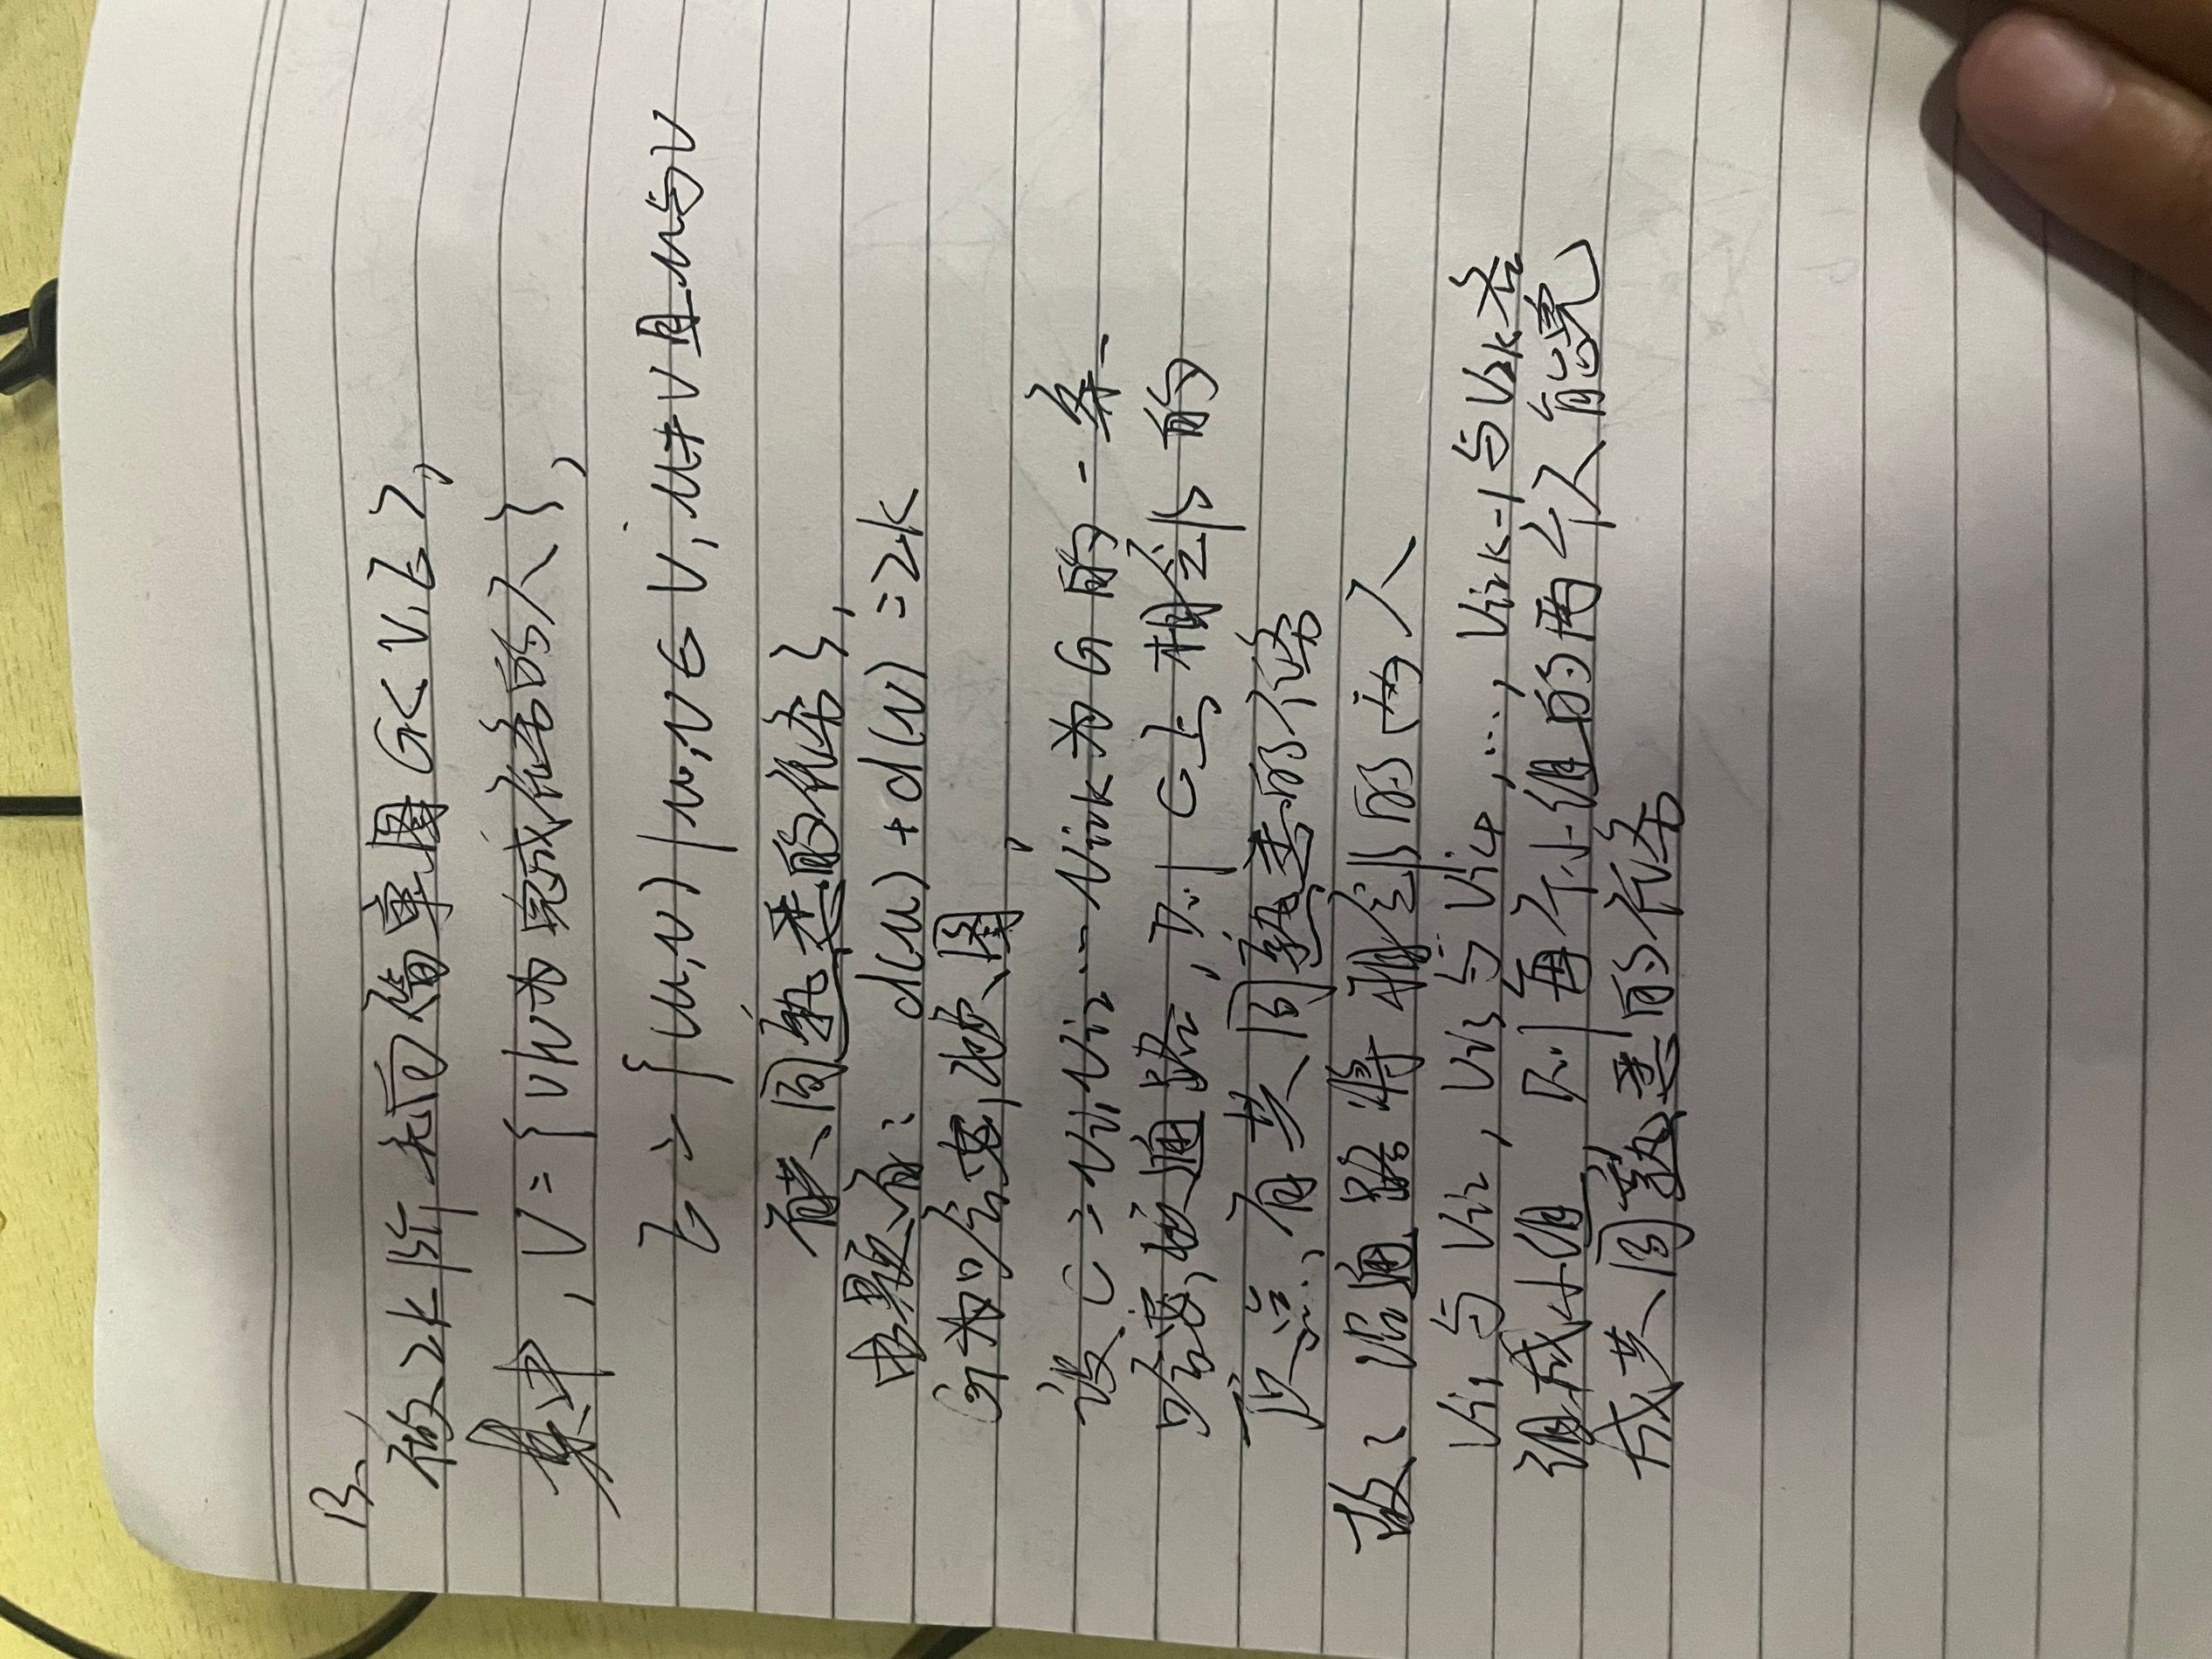 13、
做2k阶无向简单图G<V,E>,
其中,V={v|v为完成任务的人},
E={(u,v)|u,v∈V,u≠v且u与v
有共同熟悉的任务},
由题有: d(u)+d(v)=2k
G为哈密顿图,
设C=Vi1Vi2…Vi2k为G的一条
哈密顿通路,则C上相邻的
顶点,有共同熟悉的任务
故:沿通路将相邻的两人
Vi1与Vi2,Vi3与Vi4,…,Vi2k-1与V2k各
组成小组,则每个小组的两个人能完
成共同熟悉的任务